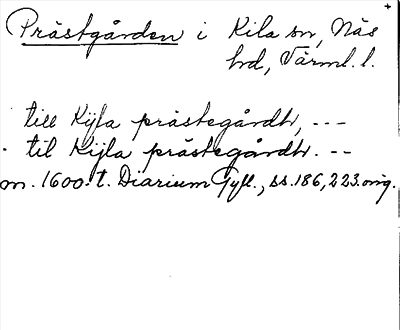 Prästgården i Kila sn, Näs
hd, Värml. l.
till Kÿla prästegårdh, ---
til Kijla prästegårdh. --
m. 1600-t. Diarium Gyll., ss. 186, 223. orig.